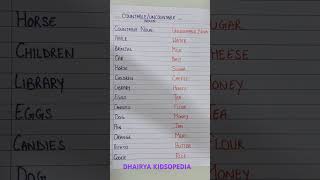 COUNTABLE/UNCOUNTABLE
NOUN
COUNTABLE NOUN UNCOUNTABLE NOUN
APPLE WATER
MILK
CAR
HORSE SUGAR
CHILDREN CHEESE
LIBRARY HONEY
EGGS TEA
CANDIES FLOUR
DOG MONEY
PEN JAM
ORANGE
POTATO BUTTER
DHAIRYA KIDSOPEDIA
HORSE
CHILDREN
LIBRARY
EGGS
CANDIES
DOG
UGAR
HEESE
ONEY
EA
LOUR
ONEY